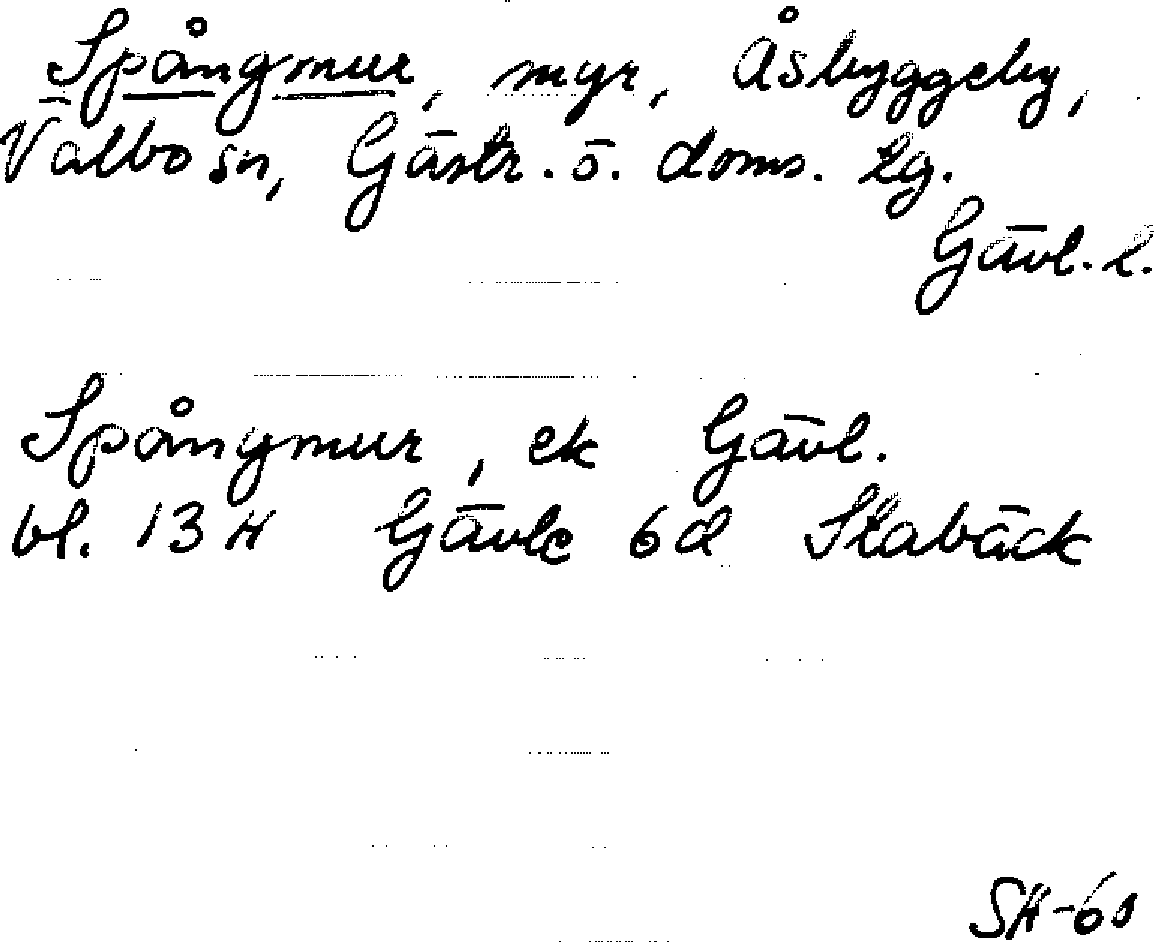 Spångmur, myr, Åsbyggeby,
Valbo sn, Gästr. ö. doms. lg.
Gävl. l.
Spångmur, ek Gävl.
bl. 13 H Gävle 6d Stabäck
SH-60